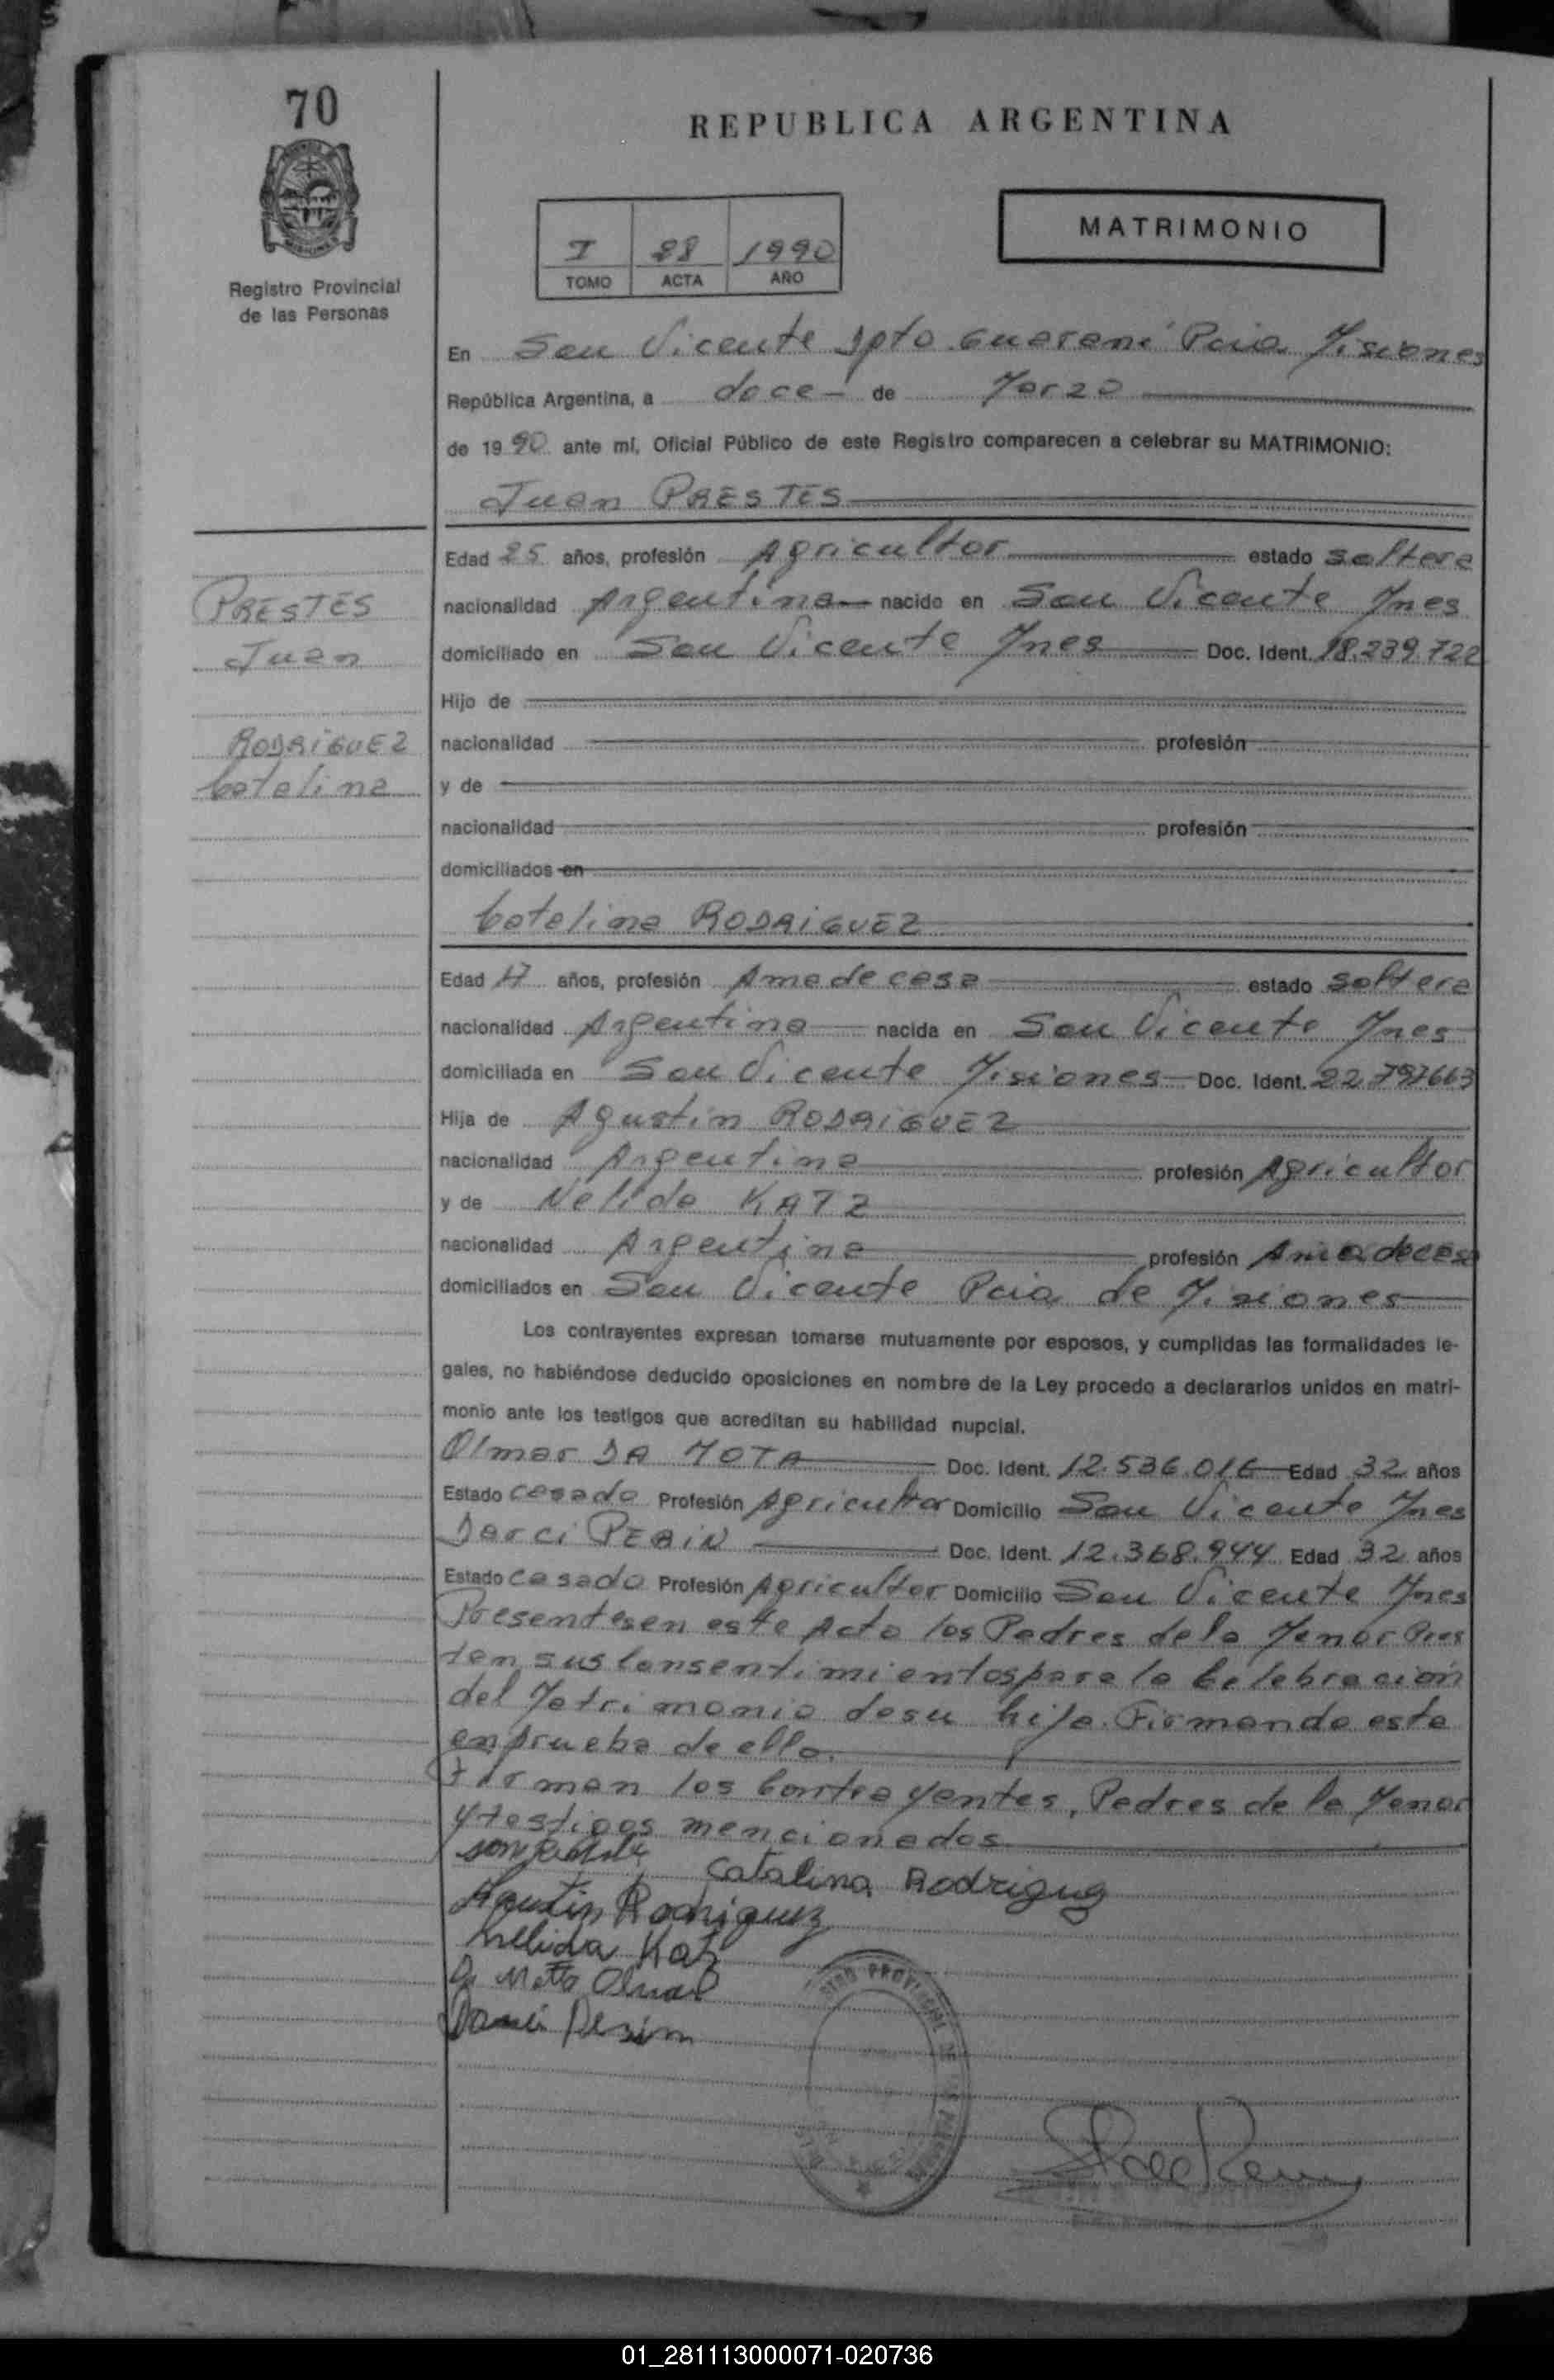 70
REPUBLICA ARGENTINA
Registro Provincial
de las Personas
I 28 1990
TOMO ACTA AÑO
MATRIMONIO
En San Vicente Dpto Guarani Pcia Misiones
República Argentina, a doce de Marzo
de 1990 ante mí, Oficial Público de este Registro comparecen a celebrar su MATRIMONIO:
Juan PRESTES
Edad 25 años, profesión Agricultor estado soltero
nacionalidad Argentina nacido en San Vicente Mnes
domiciliado en San Vicente Mnes Doc. Ident. 18.239.722
Hijo de
nacionalidad profesión
y de
nacionalidad profesión
domiciliados en
PRESTES
Juan
RODRIGUEZ
Catalina
Catalina RODRIGUEZ
Edad 17 años, profesión Ama de casa estado soltera
nacionalidad Argentina nacida en San Vicente Mnes
domiciliada en San Vicente Misiones Doc. Ident. 22.797663
Hija de Agustin RODRIGUEZ
nacionalidad Argentina profesión Agricultor
y de Nelida KATZ
nacionalidad Argentina profesión Ama de casa
domiciliados en San Vicente Pcia de Misiones
Los contrayentes expresan tomarse mutuamente por esposos, y cumplidas las formalidades le-
gales, no habiéndose deducido oposiciones en nombre de la Ley procedo a declararlos unidos en matri-
monio ante los testigos que acreditan su habilidad nupcial.
Olmar DA MOTA Doc. Ident. 12.536.016 Edad 32 años
Estado casado Profesión Agricultor Domicilio San Vicente Mnes
Darci PERIN Doc. Ident. 12.368.944 Edad 32 años
Estado casado Profesión Agricultor Domicilio San Vicente Mnes
Presentes en este Acto los Padres de la Menor Pres
tan sus Consentimientos para la Celebracion
del Matrimonio de su hija. Firmando esta
en prueba de ello.
Firman los Contrayentes, Padres de la Menor
y testigos mencionados
Catalina Rodriguez
Agustin Rodriguez
Nelida Katz
Da Motta Olmar
Darci Perin
01_281113000071-020736